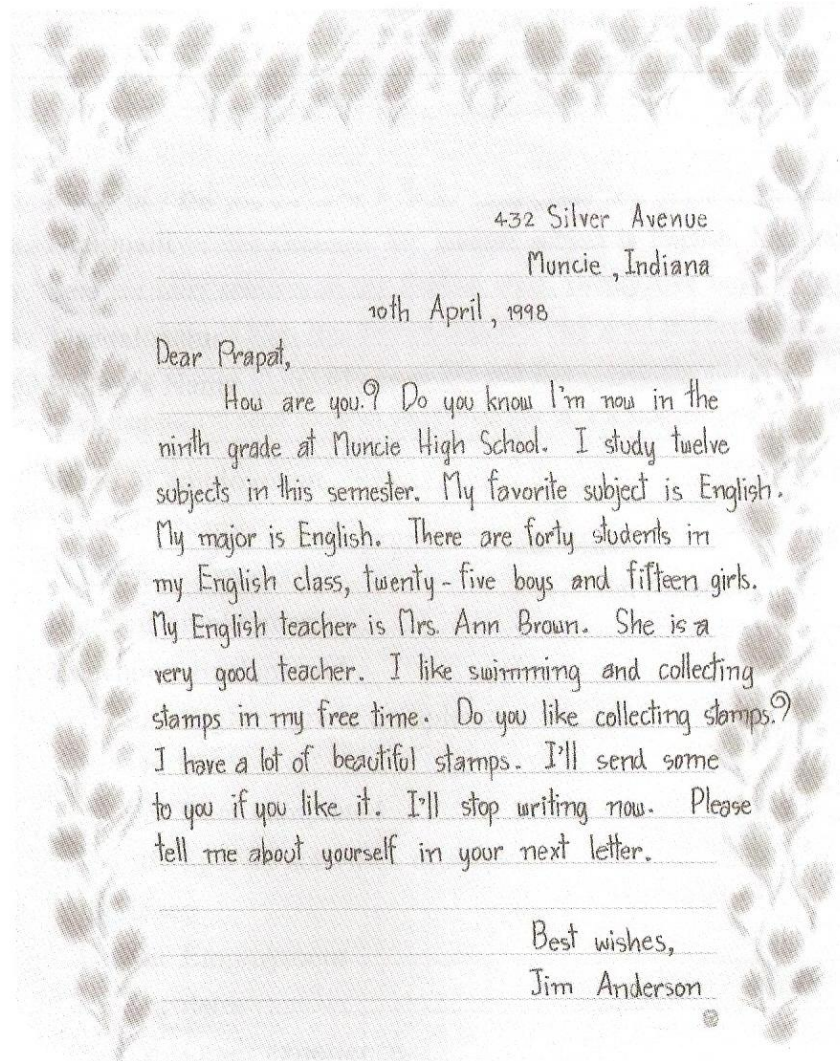 432 Silver Avenue
Muncie, Indiana
10th April, 1998
Dear Prapat,
How are you? Do you know I'm now in the
ninth grade at Muncie High School. I study twelve
subjects in this semester. My favorite subject is English.
My major is English. There are forty students in
my English class, twenty-five boys and fifteen girls.
My English teacher is Mrs. Ann Brown. She is a
very good teacher. I like swimming and collecting
stamps in my free time. Do you like collecting stamps?
I have a lot of beautiful stamps. I'll send some
to you if you like it. I'll stop writing now. Please
tell me about yourself in your next letter.
Best wishes,
Jim Anderson